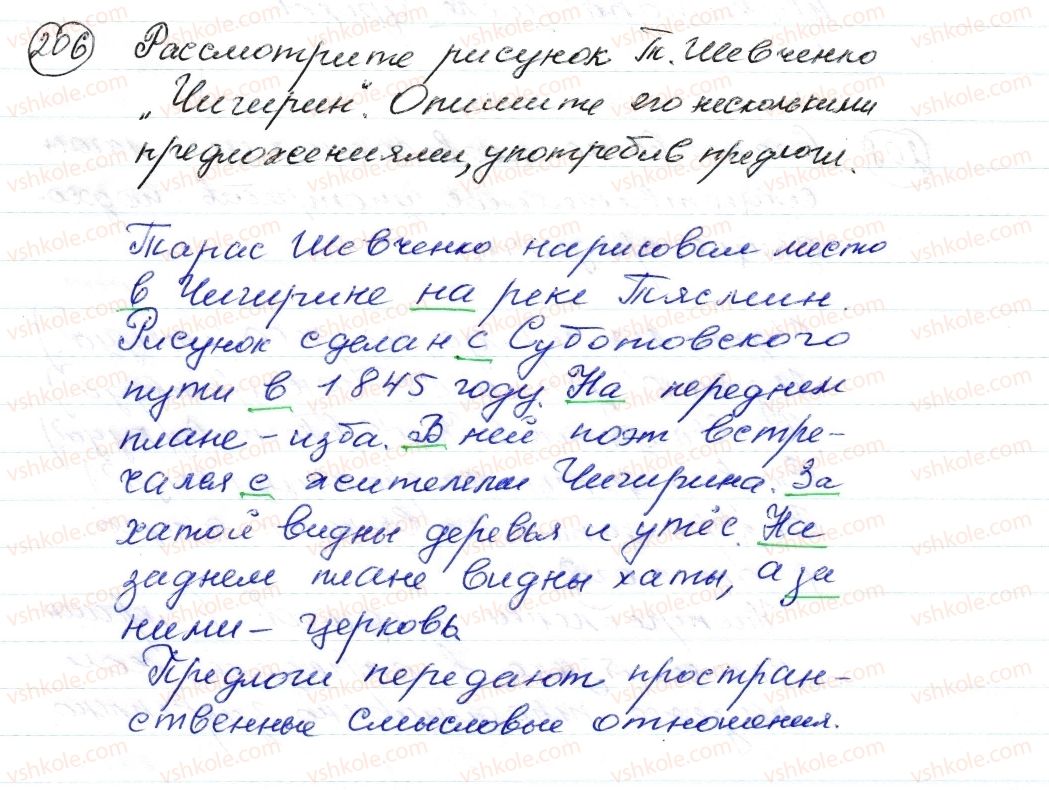 206 Рассмотрите рисунок Т. Шевченко
„Чигирин". Опишите его несколькими
предложениями, употребив предлоги.
Тарас Шевченко нарисовал место
в Чигирине на реке Тясмин.
Рисунок сделан с Суботовского
пути в 1845 году. На переднем
плане - изба. В ней поэт встре-
чался с жителями Чигирина. За
хатой видны деревья и утёс. На
заднем плане видны хаты, а за
ними - церковь.
Предлоги передают простран-
ственные смысловые отношения.